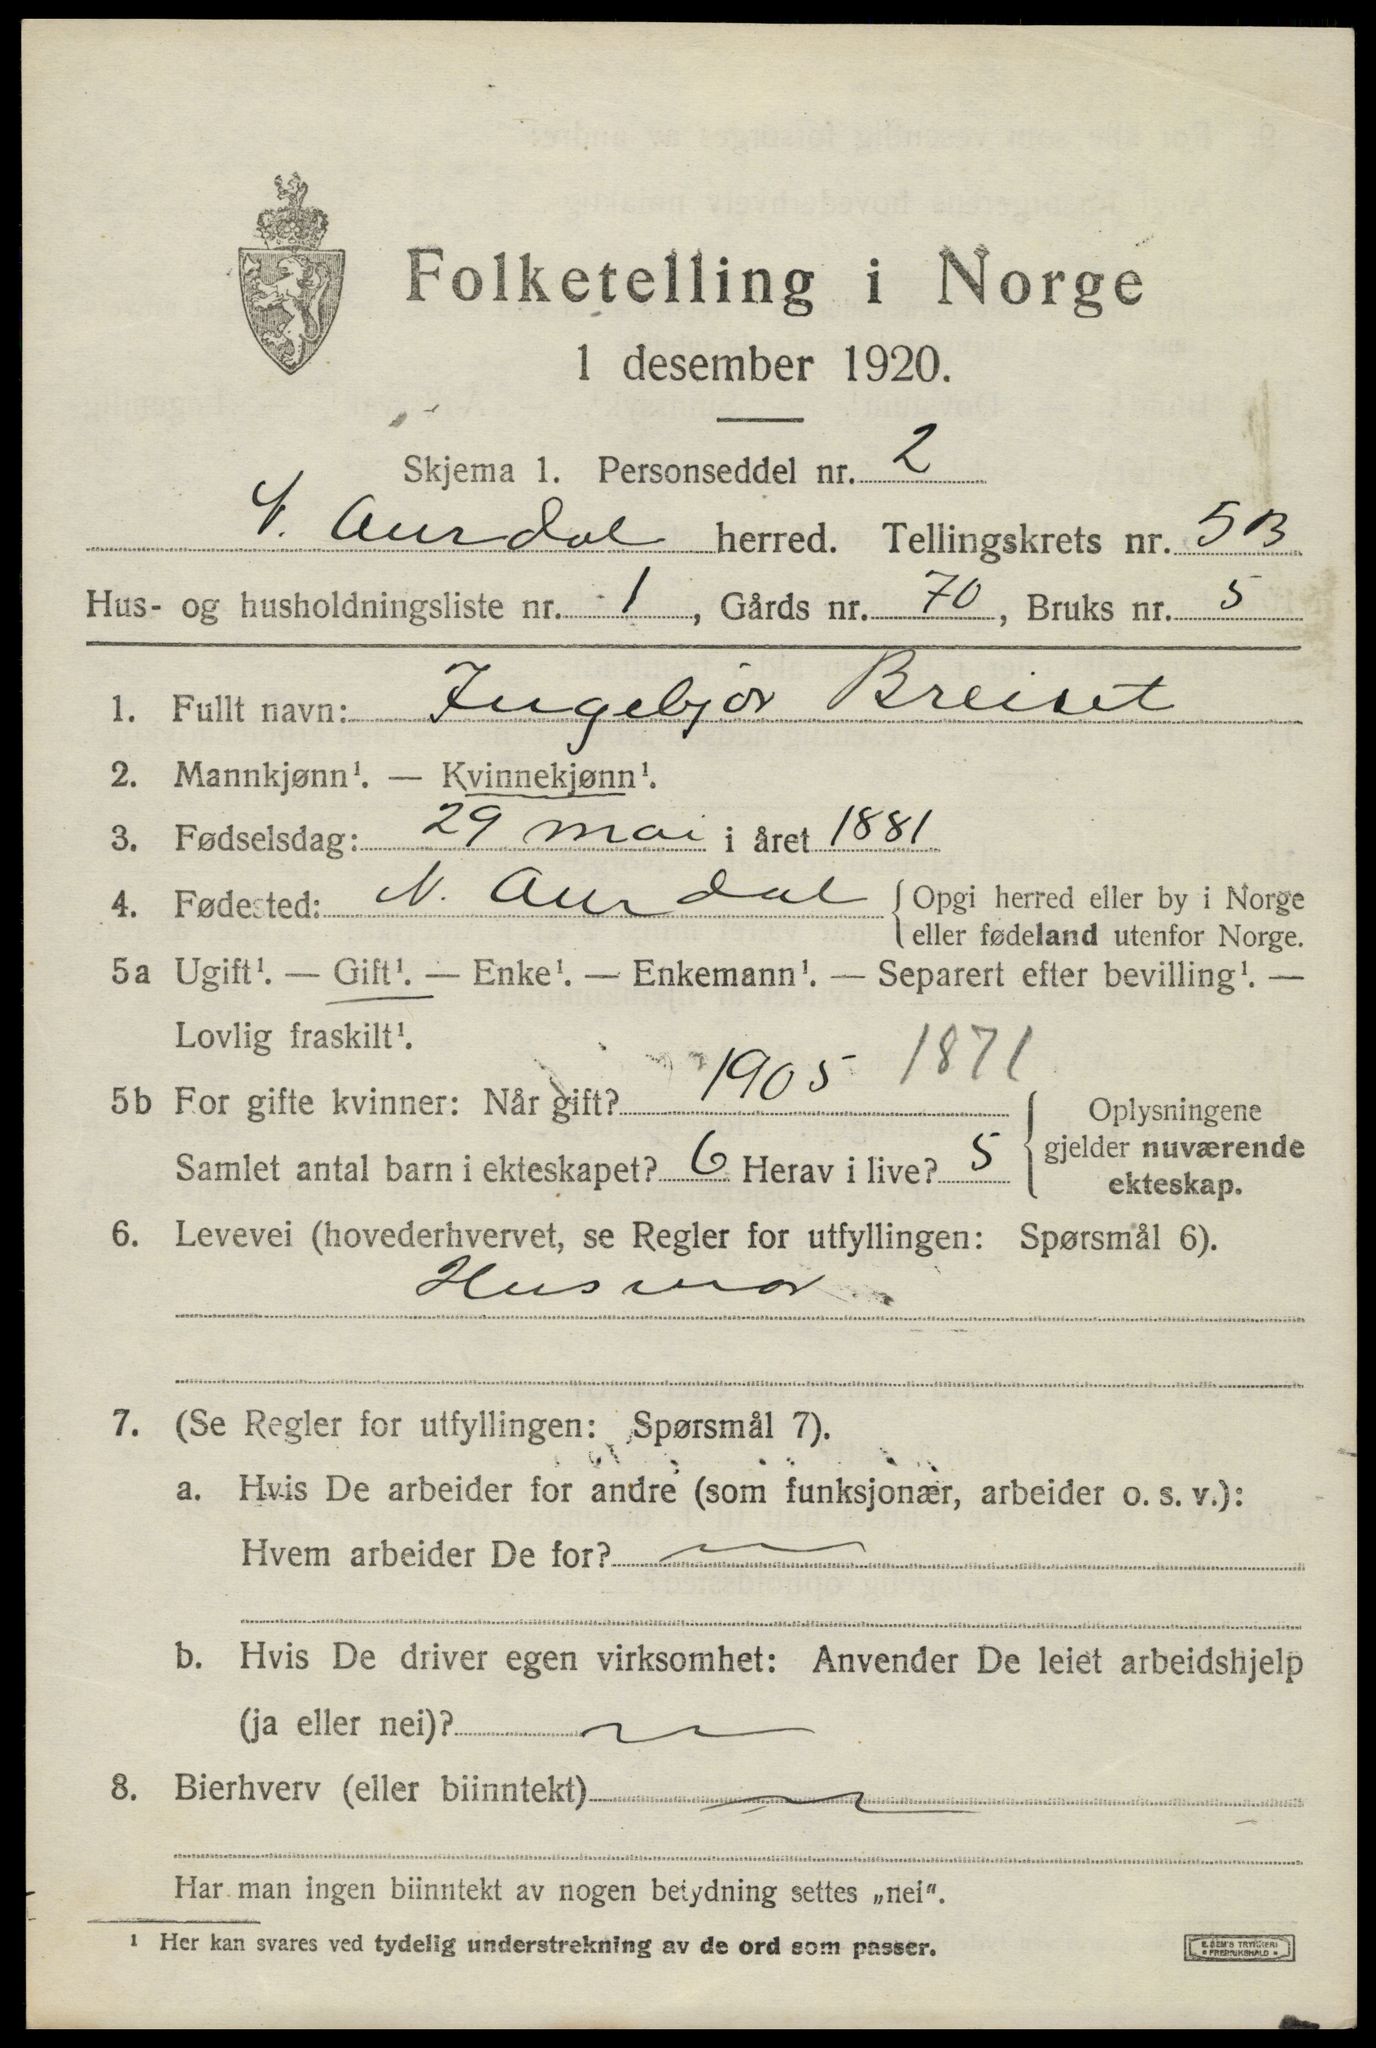 Folketelling i Norge
1 desember 1920.
Skjema 1. Personseddel nr. 2
N. Aurdal herred. Tellingskrets nr. 5B
Hus- og husholdningsliste nr. 1, Gårds nr. 70, Bruks nr. 5
1. Fullt navn: Ingebjør Breiset
2. Mannkjønn¹. — Kvinnekjønn¹.
3. Fødselsdag: 29 mai i året 1881
4. Fødested: N. Aurdal { Opgi herred eller by i Norge
eller fødeland utenfor Norge.
5a Ugift¹. — Gift¹. — Enke¹. — Enkemann¹. — Separert efter bevilling¹. —
Lovlig fraskilt¹.
1871
5b For gifte kvinner: Når gift? 1905
Samlet antal barn i ekteskapet? 6 Herav i live? 5
Oplysningene
gjelder nuværende
ekteskap.
6. Levevei (hovederhvervet, se Regler for utfyllingen: Spørsmål 6).
Husmor
7. (Se Regler for utfyllingen: Spørsmål 7).
a. Hvis De arbeider for andre (som funksjonær, arbeider o. s. v.):
Hvem arbeider De for?
b. Hvis De driver egen virksomhet: Anvender De leiet arbeidshjelp
(ja eller nei)?
8. Bierhverv (eller biinntekt)
Har man ingen biinntekt av nogen betydning settes „nei".
¹ Her kan svares ved tydelig understrekning av de ord som passer.
E. SEM'S TRYKKERI
FREDRIKSHALD